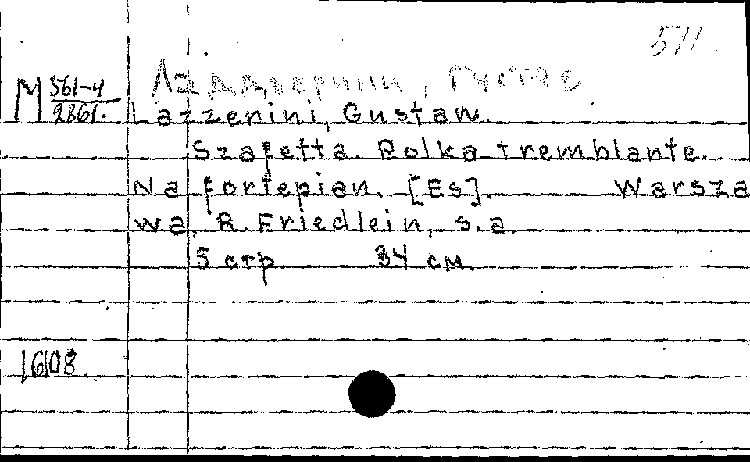 571
М 561-4
2861.
Lazzerini, Gustaw.
Sztafetta. Polka tremblante.
Na fortepian. [Es]. Warsza
wa, R. Friedlein, s.a.
5 стр 34 см.
1608.